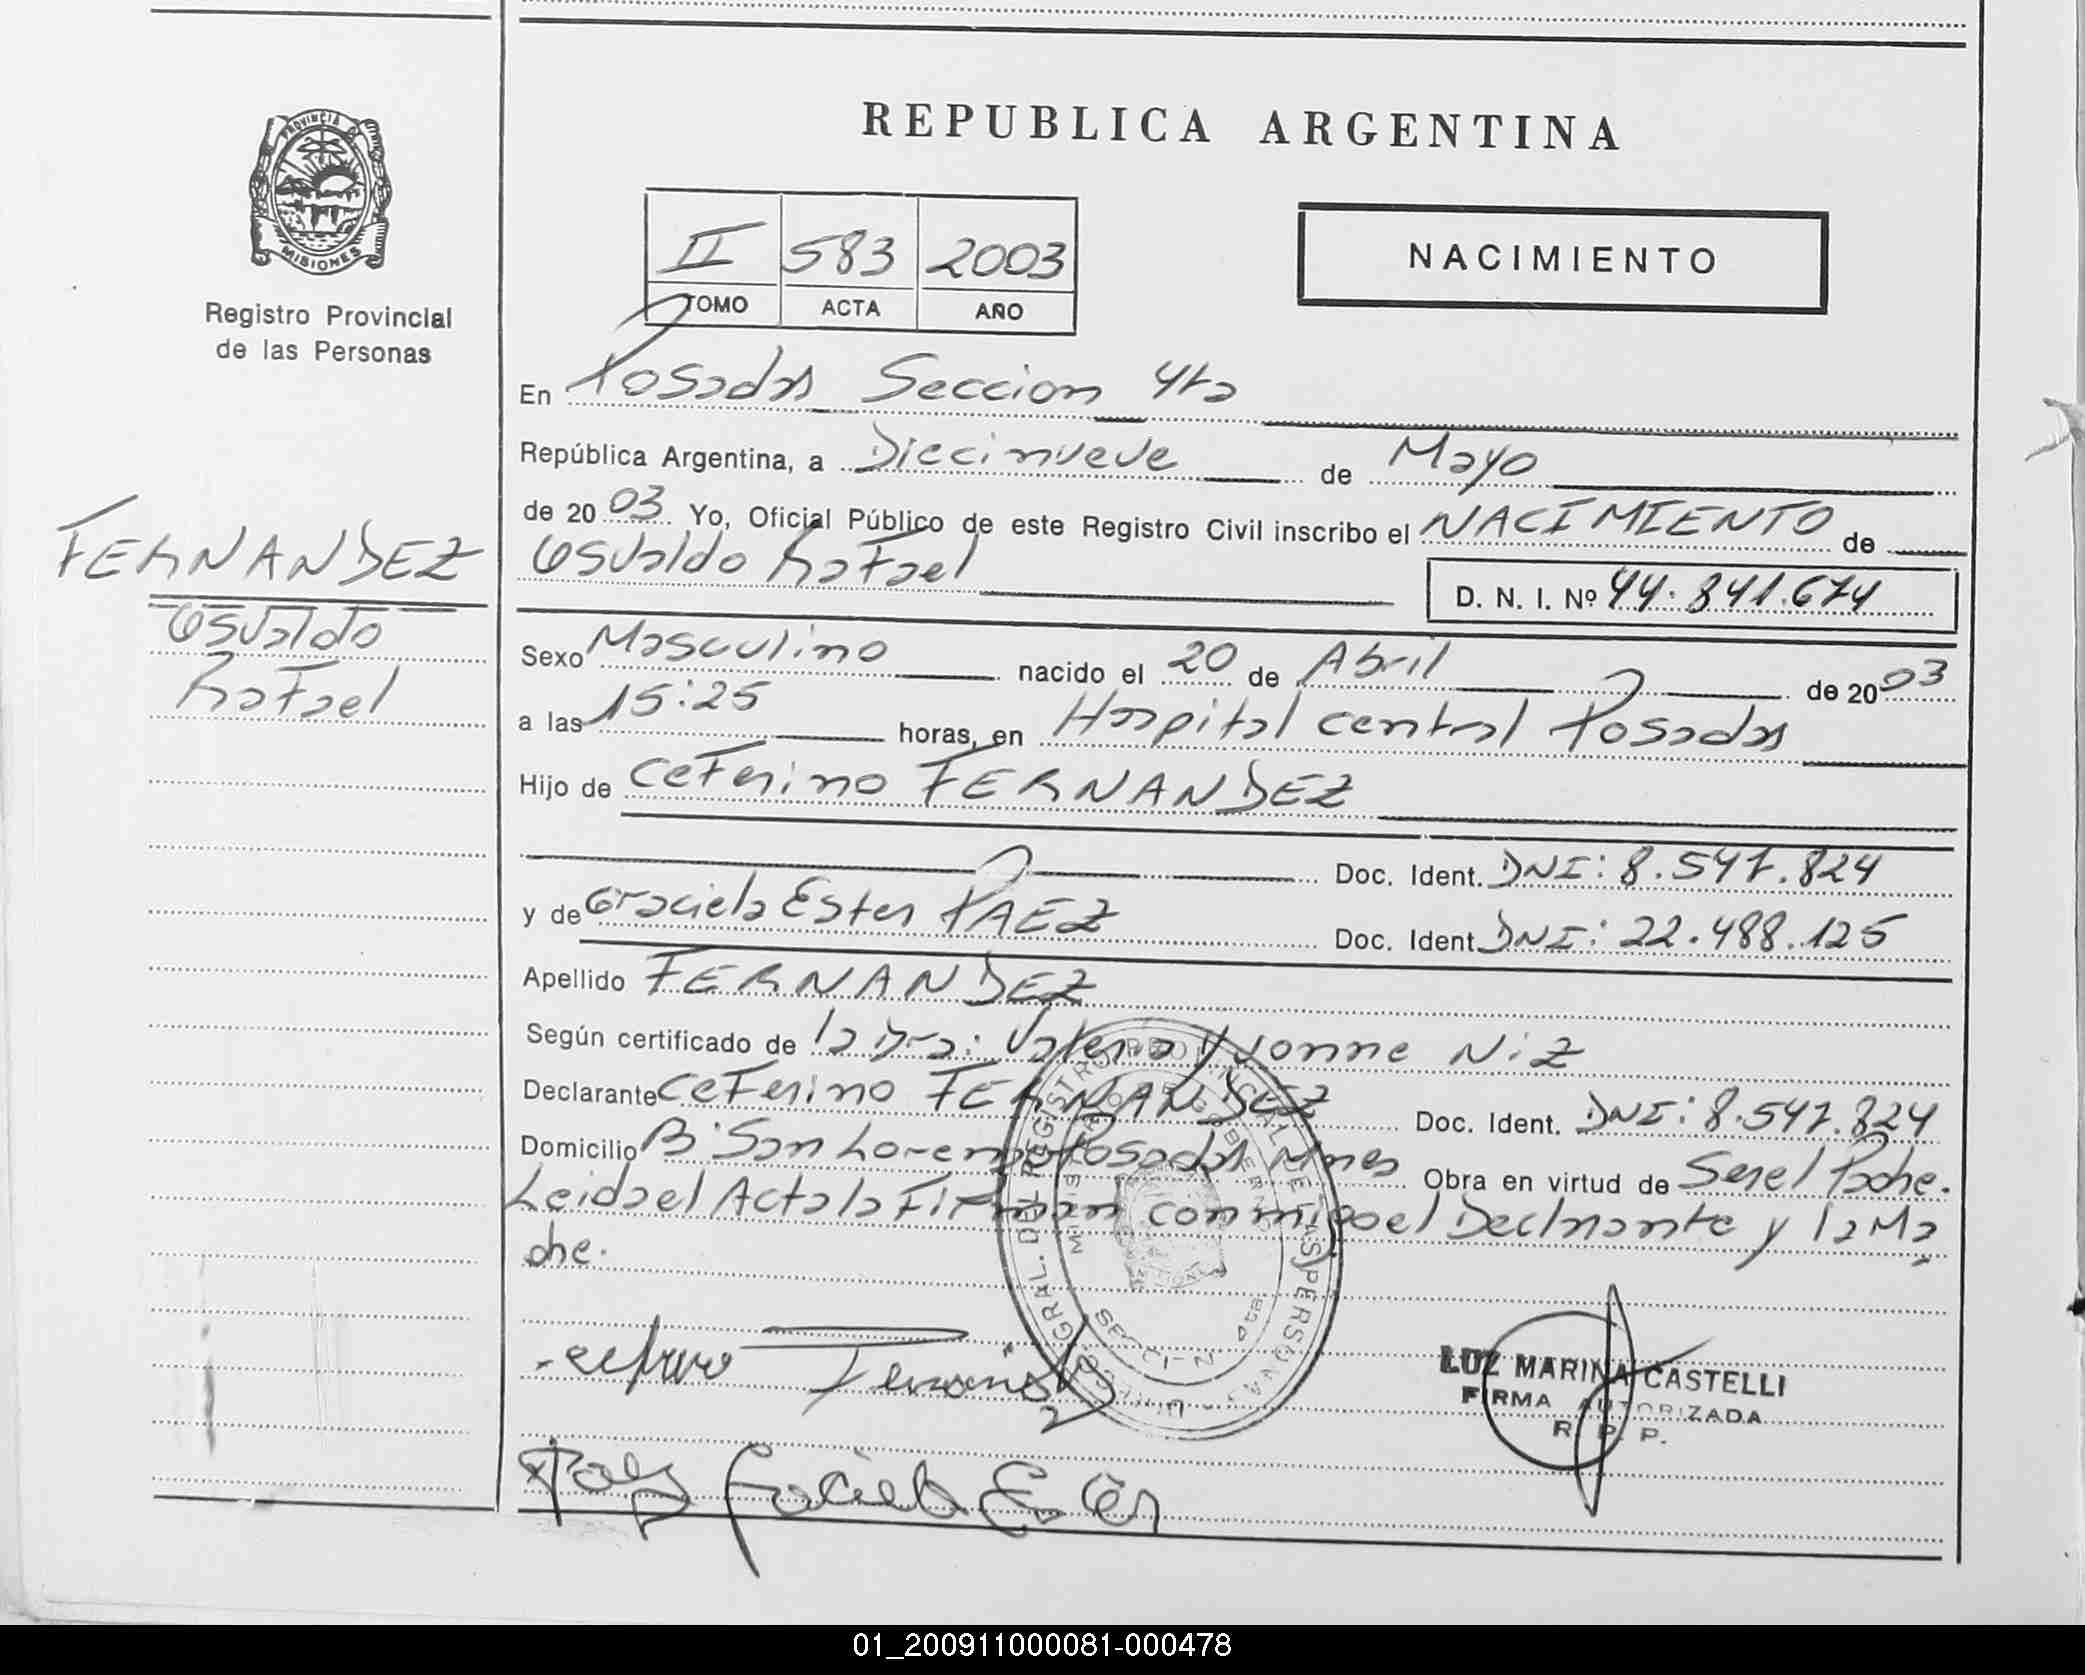 PROVINCIA DE
MISIONES
Registro Provincial
de las Personas
FERNANDEZ
Osvaldo
Rafael
REPUBLICA ARGENTINA
II 583 2003
TOMO ACTA AÑO
NACIMIENTO
En Posadas Seccion 4ta
República Argentina, a Diecinueve de Mayo
de 2003 Yo, Oficial Público de este Registro Civil inscribo el NACIMIENTO de
Osvaldo Rafael
D. N. I. Nº 44.841.674
Sexo Masculino nacido el 20 de Abril de 2003
a las 15:25 horas, en Hospital central Posadas
Hijo de Ceferino FERNANDEZ
Doc. Ident. DNI: 8.547.824
y de Graciela Ester PAEZ Doc. Ident. DNI: 22.488.125
Apellido FERNANDEZ
Según certificado de la Dra: Valeria Yvonne Niz
Declarante Ceferino FERNANDEZ Doc. Ident. DNI: 8.547.824
Domicilio B' San Lorenzo Posadas Mnes Obra en virtud de Ser el Padre.
Leida el Acta la Firman conmigo el Declarante y la Ma
dre.
DIREC. GRAL. DEL REGISTRO PROVINCIAL DE LAS PERSONAS
MINISTERIO DE GOBIERNO
SECCION 4ta
Ceferino Fernandez
LUZ MARINA CASTELLI
FIRMA AUTORIZADA
R. P. P.
Paez Graciela Ester
01_200911000081-000478